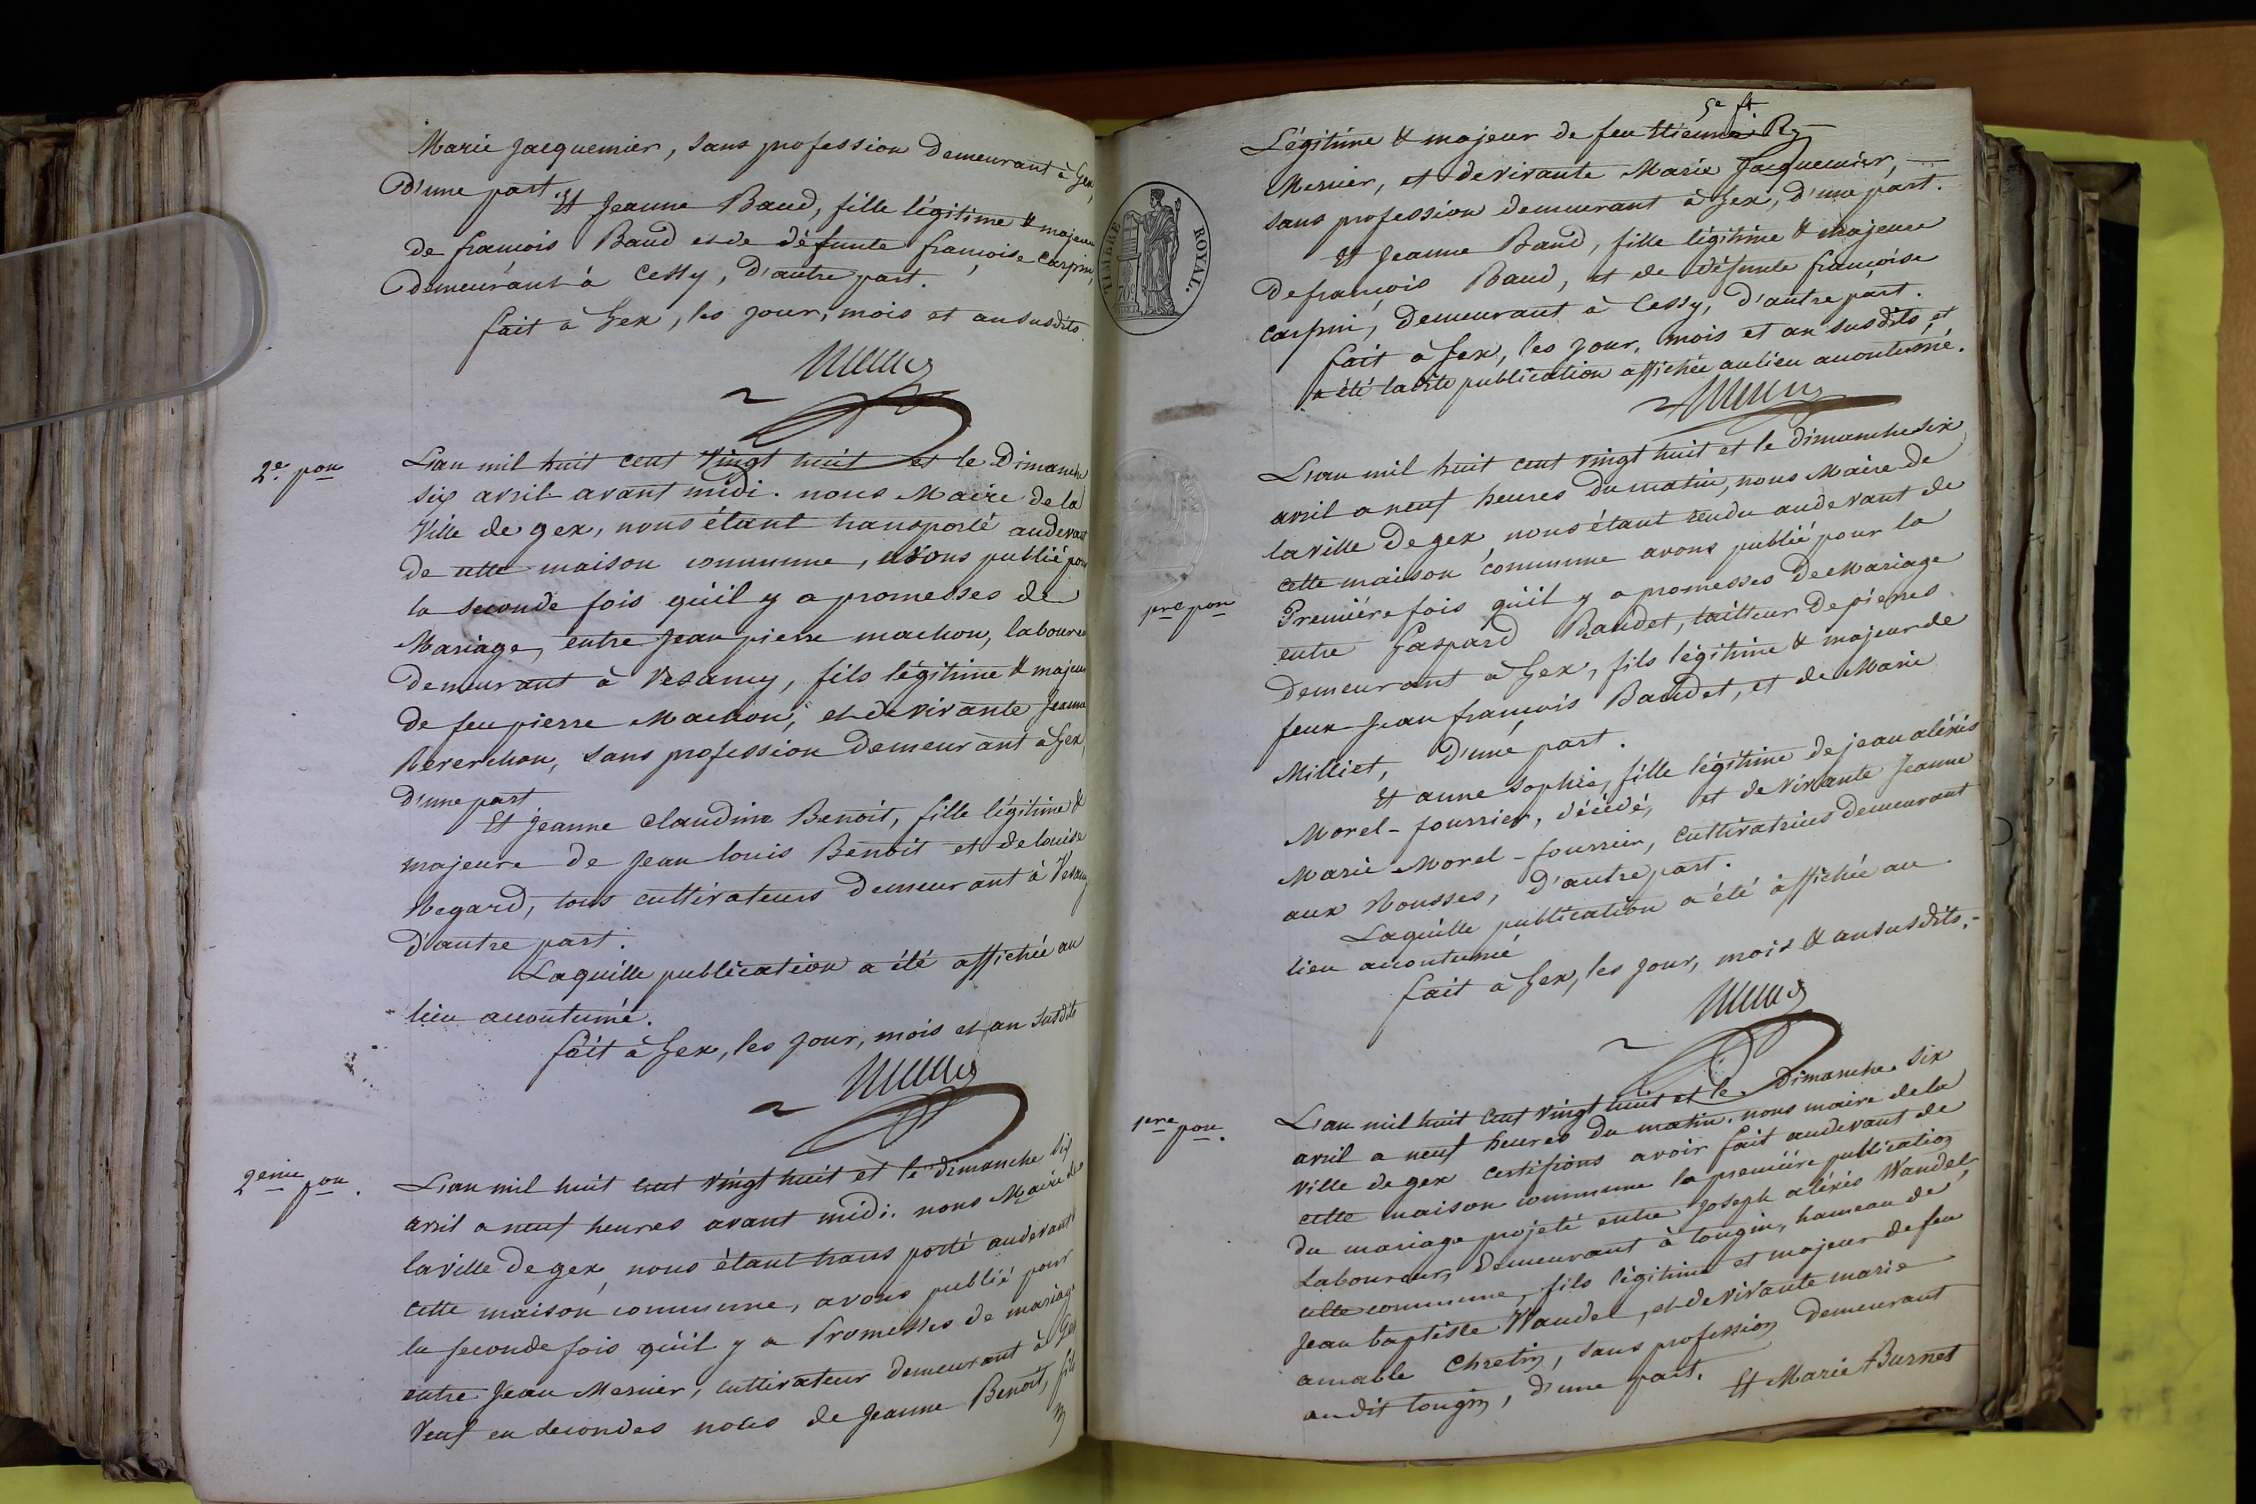 Marie Jacquemier, sans profession demeurant à Gex,
D'une part. Et Jeanne Baud, fille légitime & majeure
de francois Baud et de défunte francoise Carpin,
Demeurant à Cessy, D'autre part.
fait à Gex, les jour, mois et an susdits.
2e. pon
L'an mil huit cent vingt huit et le Dimanche
six avril avant midi. nous Maire de la
Ville de gex, nous étant transporté audevant
de cette maison commune, avons publié pour
la seconde fois qu'il y a promesses de
Mariage, entre Jean pierre machon, laboureur
demeurant à Vesancy, fils légitime & majeur
de feu pierre Machon, et de vivante Jeanne
Reverchon, sans profession Demeurant à Gex,
D'une part
Et Jeanne Claudine Benoit, fille légitime &
majeure de Jean louis Benoit et de louise
Regard, tous cultivateurs Demeurant à Vesancy
D'autre part.
Laquelle publication a été affichée au
lieu accoutumé.
fait à Gex, les jour, mois et an susdits
2eme pon.
L'an mil huit cent vingt huit et le dimanche six
avril a neuf heures avant midi. nous Maire de
la ville De gex, nous étant transporté audevant
cette maison commune, avons publié pour
la seconde fois qu'il y a Promesses de mariage
entre Jean Mesnier, cultivateur demeurant à Gex
Veuf en secondes noces de Jeanne Benoit, fils
TIMBRE ROYAL.
5e ft
Légitime & majeur de feu Etienne
Mesnier, et de vivante Marie Jacquemier,
sans profession demeurant à Gex, d'une part.
Et Jeanne Baud, fille légitime & majeure
De francois Baud, et de défunte francoise
Carpin, Demeurant à Cessy, D'autre part.
fait à Gex, les jour, mois et an susdits, et
a été ladite publication affichée au lieu accoutumé.
L'an mil huit cent vingt huit et le dimanche six
avril a neuf heures du matin, nous Maire de
la ville De gex, nous étant rendu audevant de
cette maison commune avons publié pour la
1re pon
Première fois qu'il y a promesses De Mariage
entre Gaspard Baudet, tailleur De pierres
Demeurant à Gex, fils légitime & majeur de
feux Jean francois Baudet, et de Marie
Milliet, D'une part.
Et anne Sophie, fille légitime de jean aléxis
Morel-fourrier, décédé, et de Vivante Jeanne
Marie Morel-fourrier, cultivatrices demeurant
aux Rousses, D'autre part.
Laquelle publication a été affichée au
lieu accoutumé
fait à Gex, les jour, mois & an susdits.
1ere pon.
L'an mil huit cent vingt huit et le Dimanche six
avril a neuf heures du matin. nous maire de la
Ville de gex certifions avoir fait audevant de
cette maison commune la première publication
du mariage projeté entre Joseph aléxis Wandel,
Laboureur, Demeurant à tougin, hameau de
cette commune, fils légitime et majeur de feu
Jean baptiste Wandel, et de vivante marie
amable Chretin, sans profession demeurant
audit tougin, d'une part. Et Marie Burnet